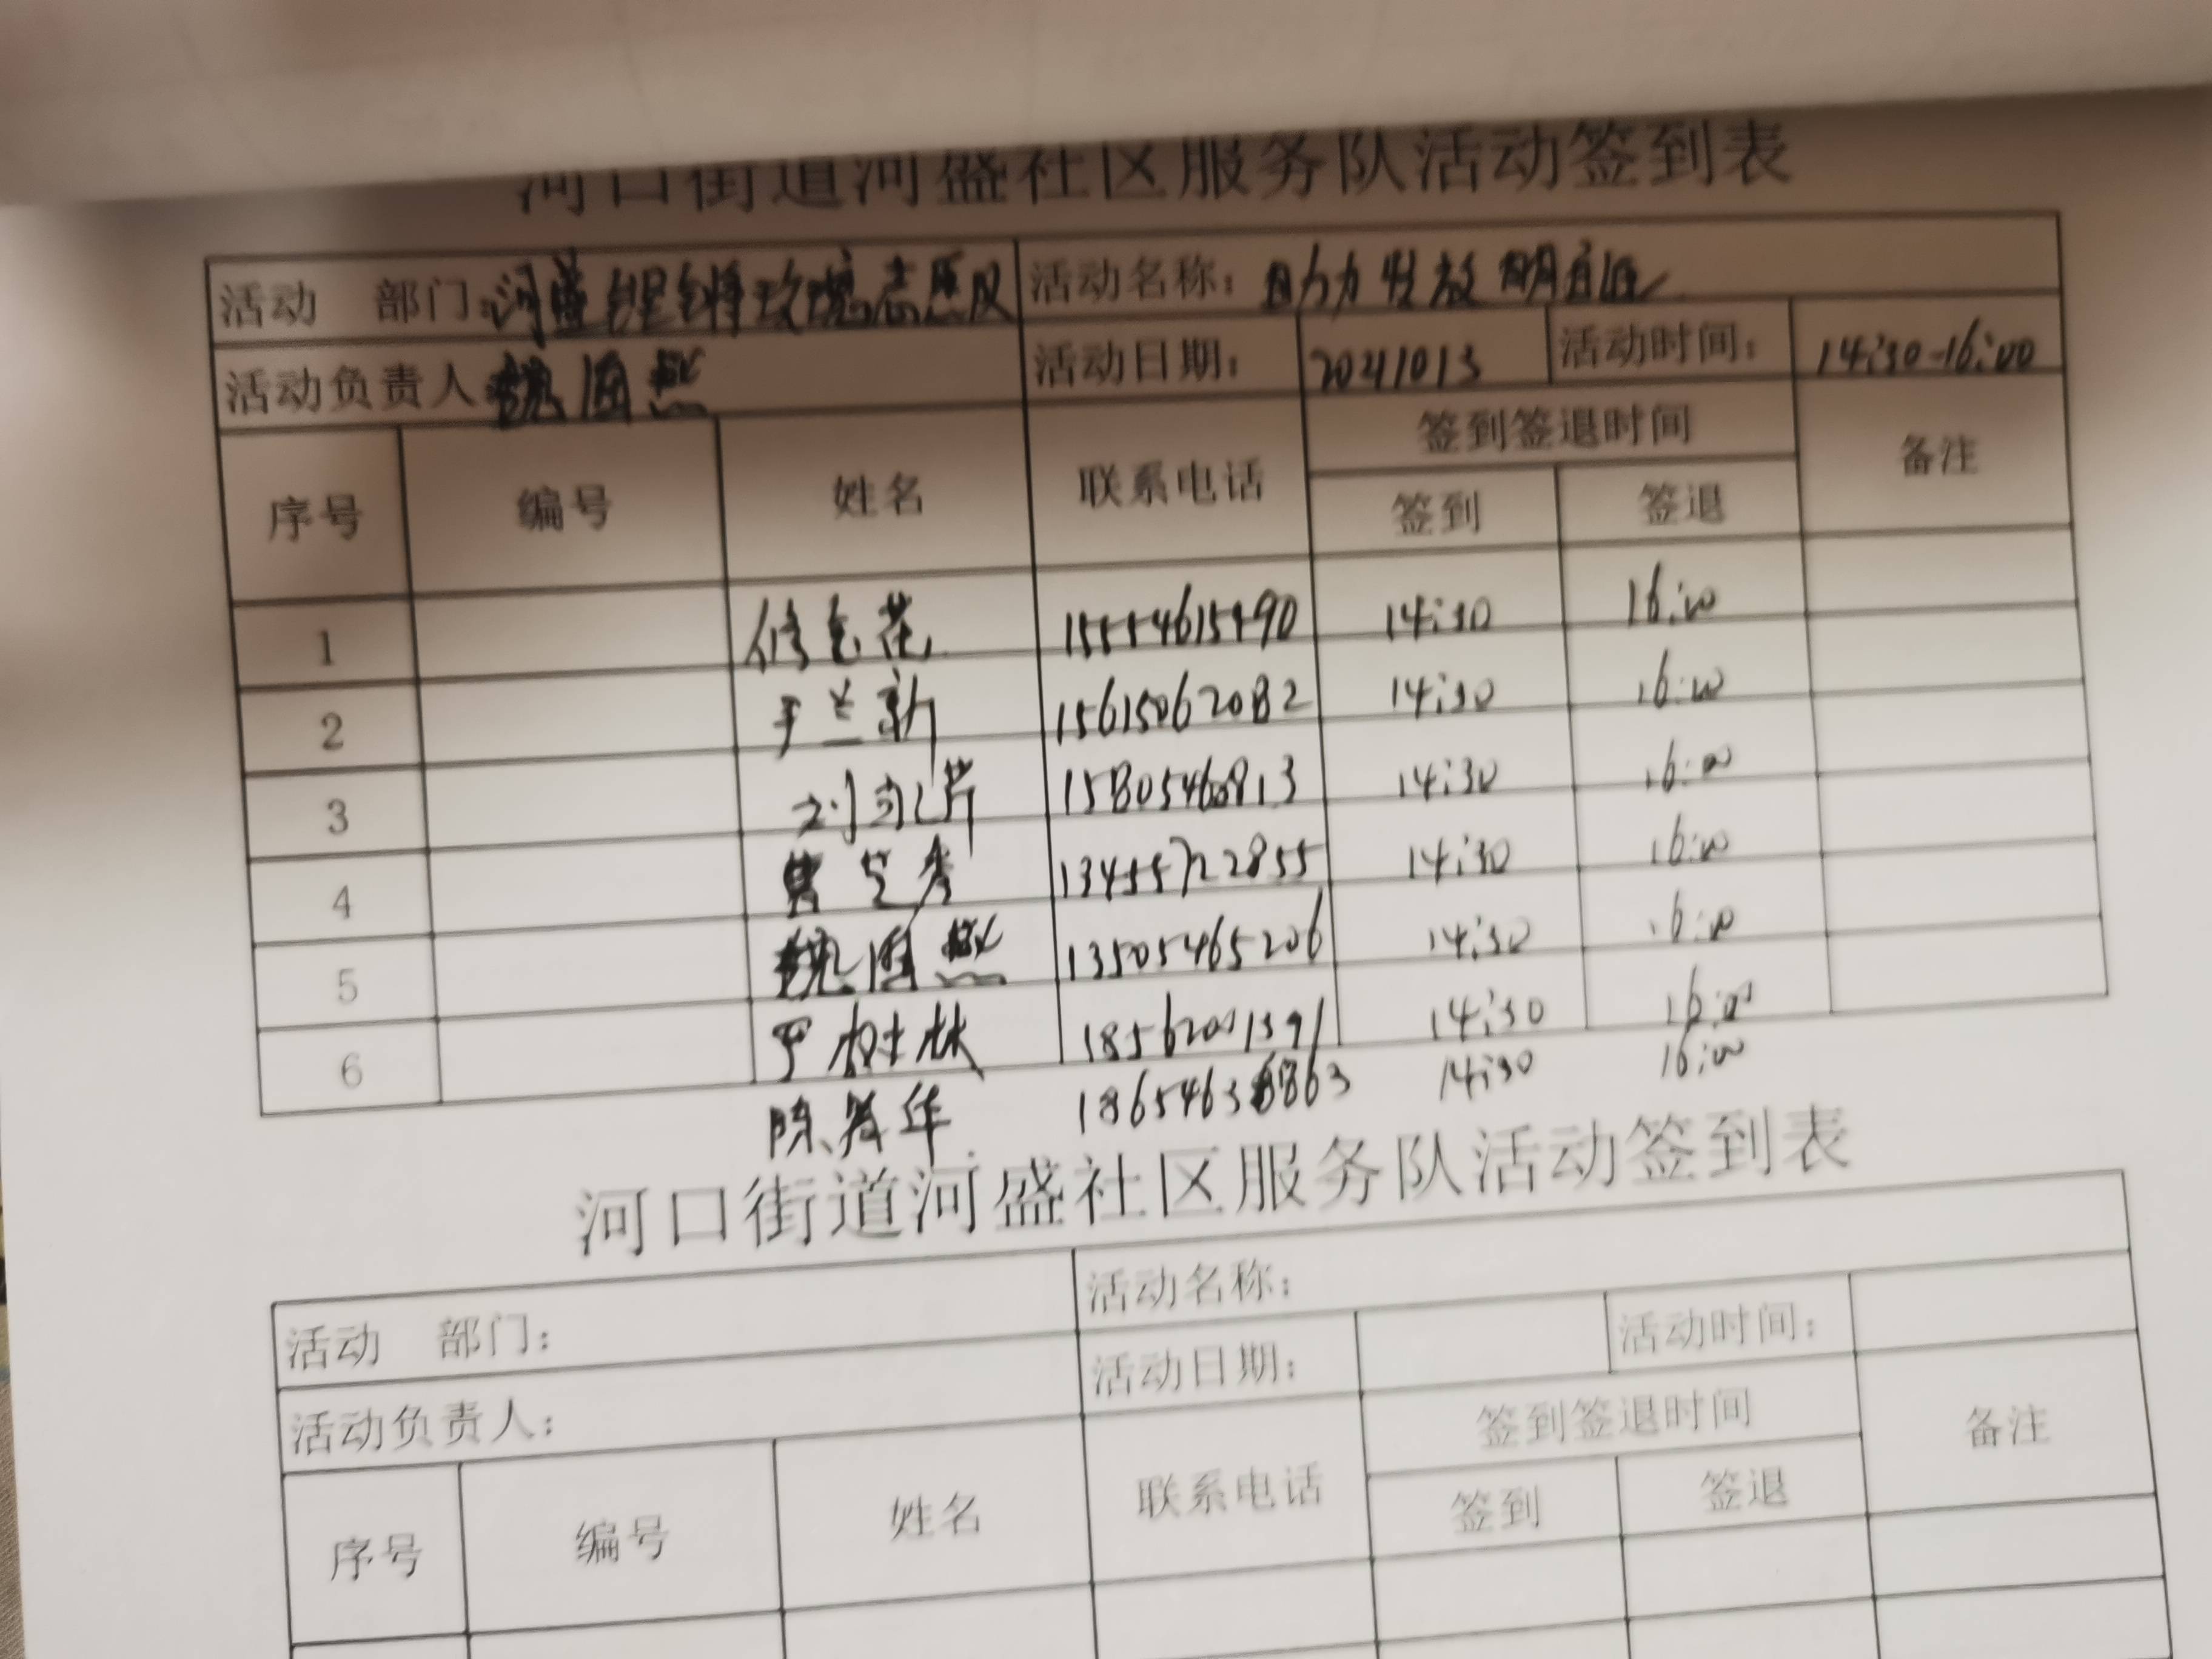 河口街道河盛社区服务队活动签到表
活动 部门: 河盛铿锵玫瑰志愿队 活动名称: 助力发放明白纸
活动负责人 魏国燕 活动日期: 20211013 活动时间: 14:30-16:00
序号 编号 姓名 联系电话 签到签退时间 备注
签到 签退
1 修金花 15554615590 14:30 16:00
2 于兰新 15615062082 14:30 16:00
3 15805460813 14:30 16:00
4 13455722855 14:30 16:00
5 魏国燕 13505465206 14:30 16:00
6 严树林 14:30 16:00
14:30 16:00
河口街道河盛社区服务队活动签到表
活动 部门: 活动名称:
活动负责人: 活动日期: 活动时间:
序号 编号 姓名 联系电话 签到签退时间 备注
签到 签退